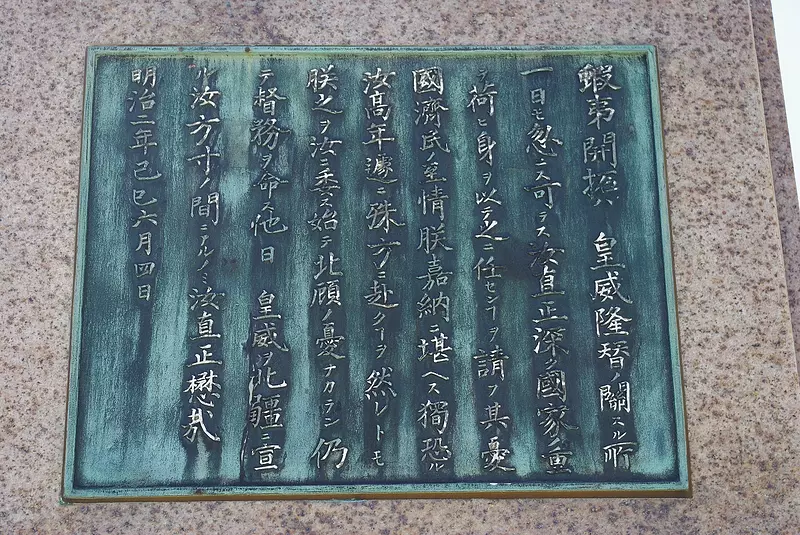 蝦夷開摭　皇威隆替ノ關スル所
一日モ忽ニス可ラス汝直正深ク國家ノ重
ヲ荷ヒ身ヲ以テ之ニ任センヿヲ請フ其憂
國濟民ノ至情朕嘉納ニ堪ヘス獨恐ル
汝髙年遽ニ殊方ニ赴クヿヲ然レトモ
朕之ヲ汝ニ委ス始テ北顧ノ憂ナカラン仍
テ督務ヲ命ス他日　皇威ヲ北疆ニ宣
ル汝方寸ノ間ニアルノミ汝直正懋哉
明治二年己巳六月四日